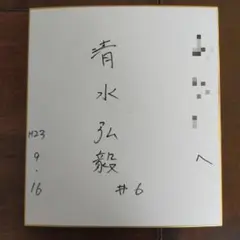 へ
清水弘毅
#6
H23
9.
16